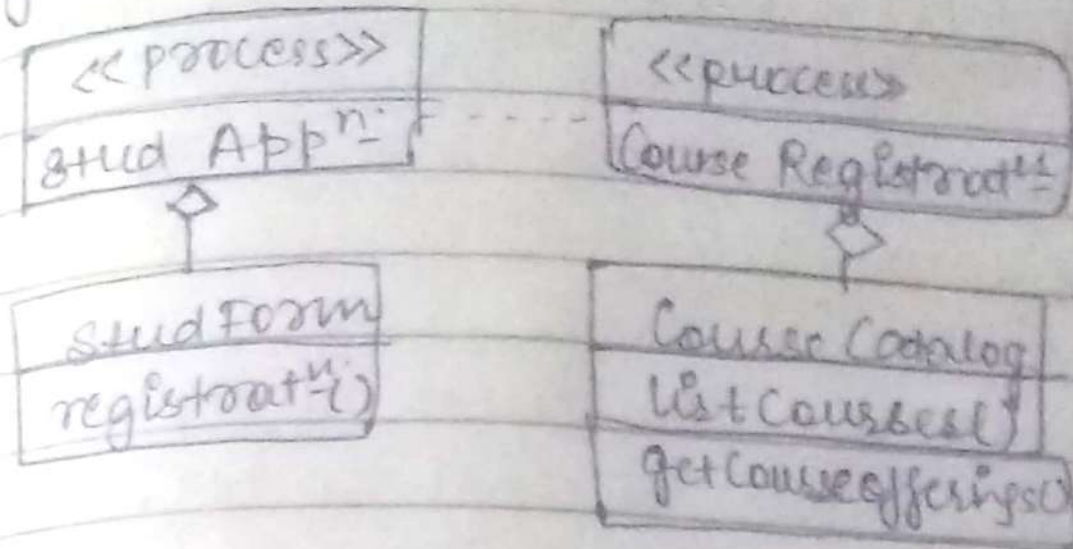 <<process>>
Stud Appn.
<<process>>
Course Registratn
Stud Form
registratn()
Course Catalog
list Courses()
get Course offerings()